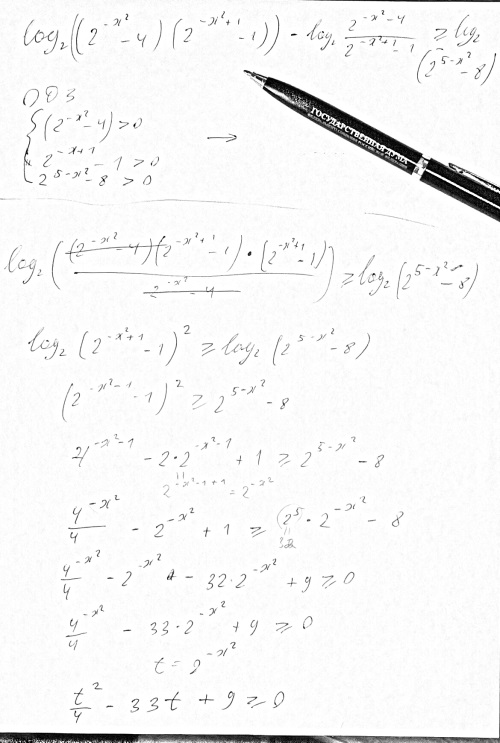 log₂((2^(-x²) - 4)(2^(-x²+1) - 1)) - log₂ (2^(-x²) - 4)/(2^(-x²+1) - 1) ≥ log₂
(2^(5-x²) - 8)
ОДЗ
{(2^(-x²) - 4) > 0
2^(-x+1) - 1 > 0 →
2^(5-x²) - 8 > 0
ГОСУДАРСТВЕННАЯ ДУМА
log₂(((2^(-x²) - 4)(2^(-x²+1) - 1)·(2^(-x²+1) - 1))/(2^(-x²) - 4)) ≥ log₂(2^(5-x²) - 8)
log₂(2^(-x²+1) - 1)² ≥ log₂(2^(5-x²) - 8)
(2^(-x²-1) - 1)² ≥ 2^(5-x²) - 8
4^(-x²-1) - 2·2^(-x²-1) + 1 ≥ 2^(5-x²) - 8
2^(-x²-1+1) = 2^(-x²)
4^(-x²)/4 - 2^(-x²) + 1 ≥ 2⁵·2^(-x²) - 8
32
4^(-x²)/4 - 2^(-x²) - 32·2^(-x²) + 9 ≥ 0
4^(-x²)/4 - 33·2^(-x²) + 9 ≥ 0
t = 2^(-x²)
t²/4 - 33t + 9 ≥ 0